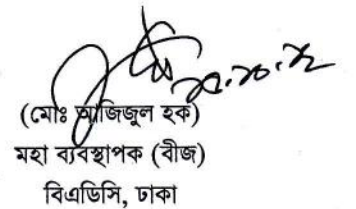 (মোঃ আজিজুল হক)
মহা ব্যবস্থাপক (বীজ)
বিএডিসি, ঢাকা